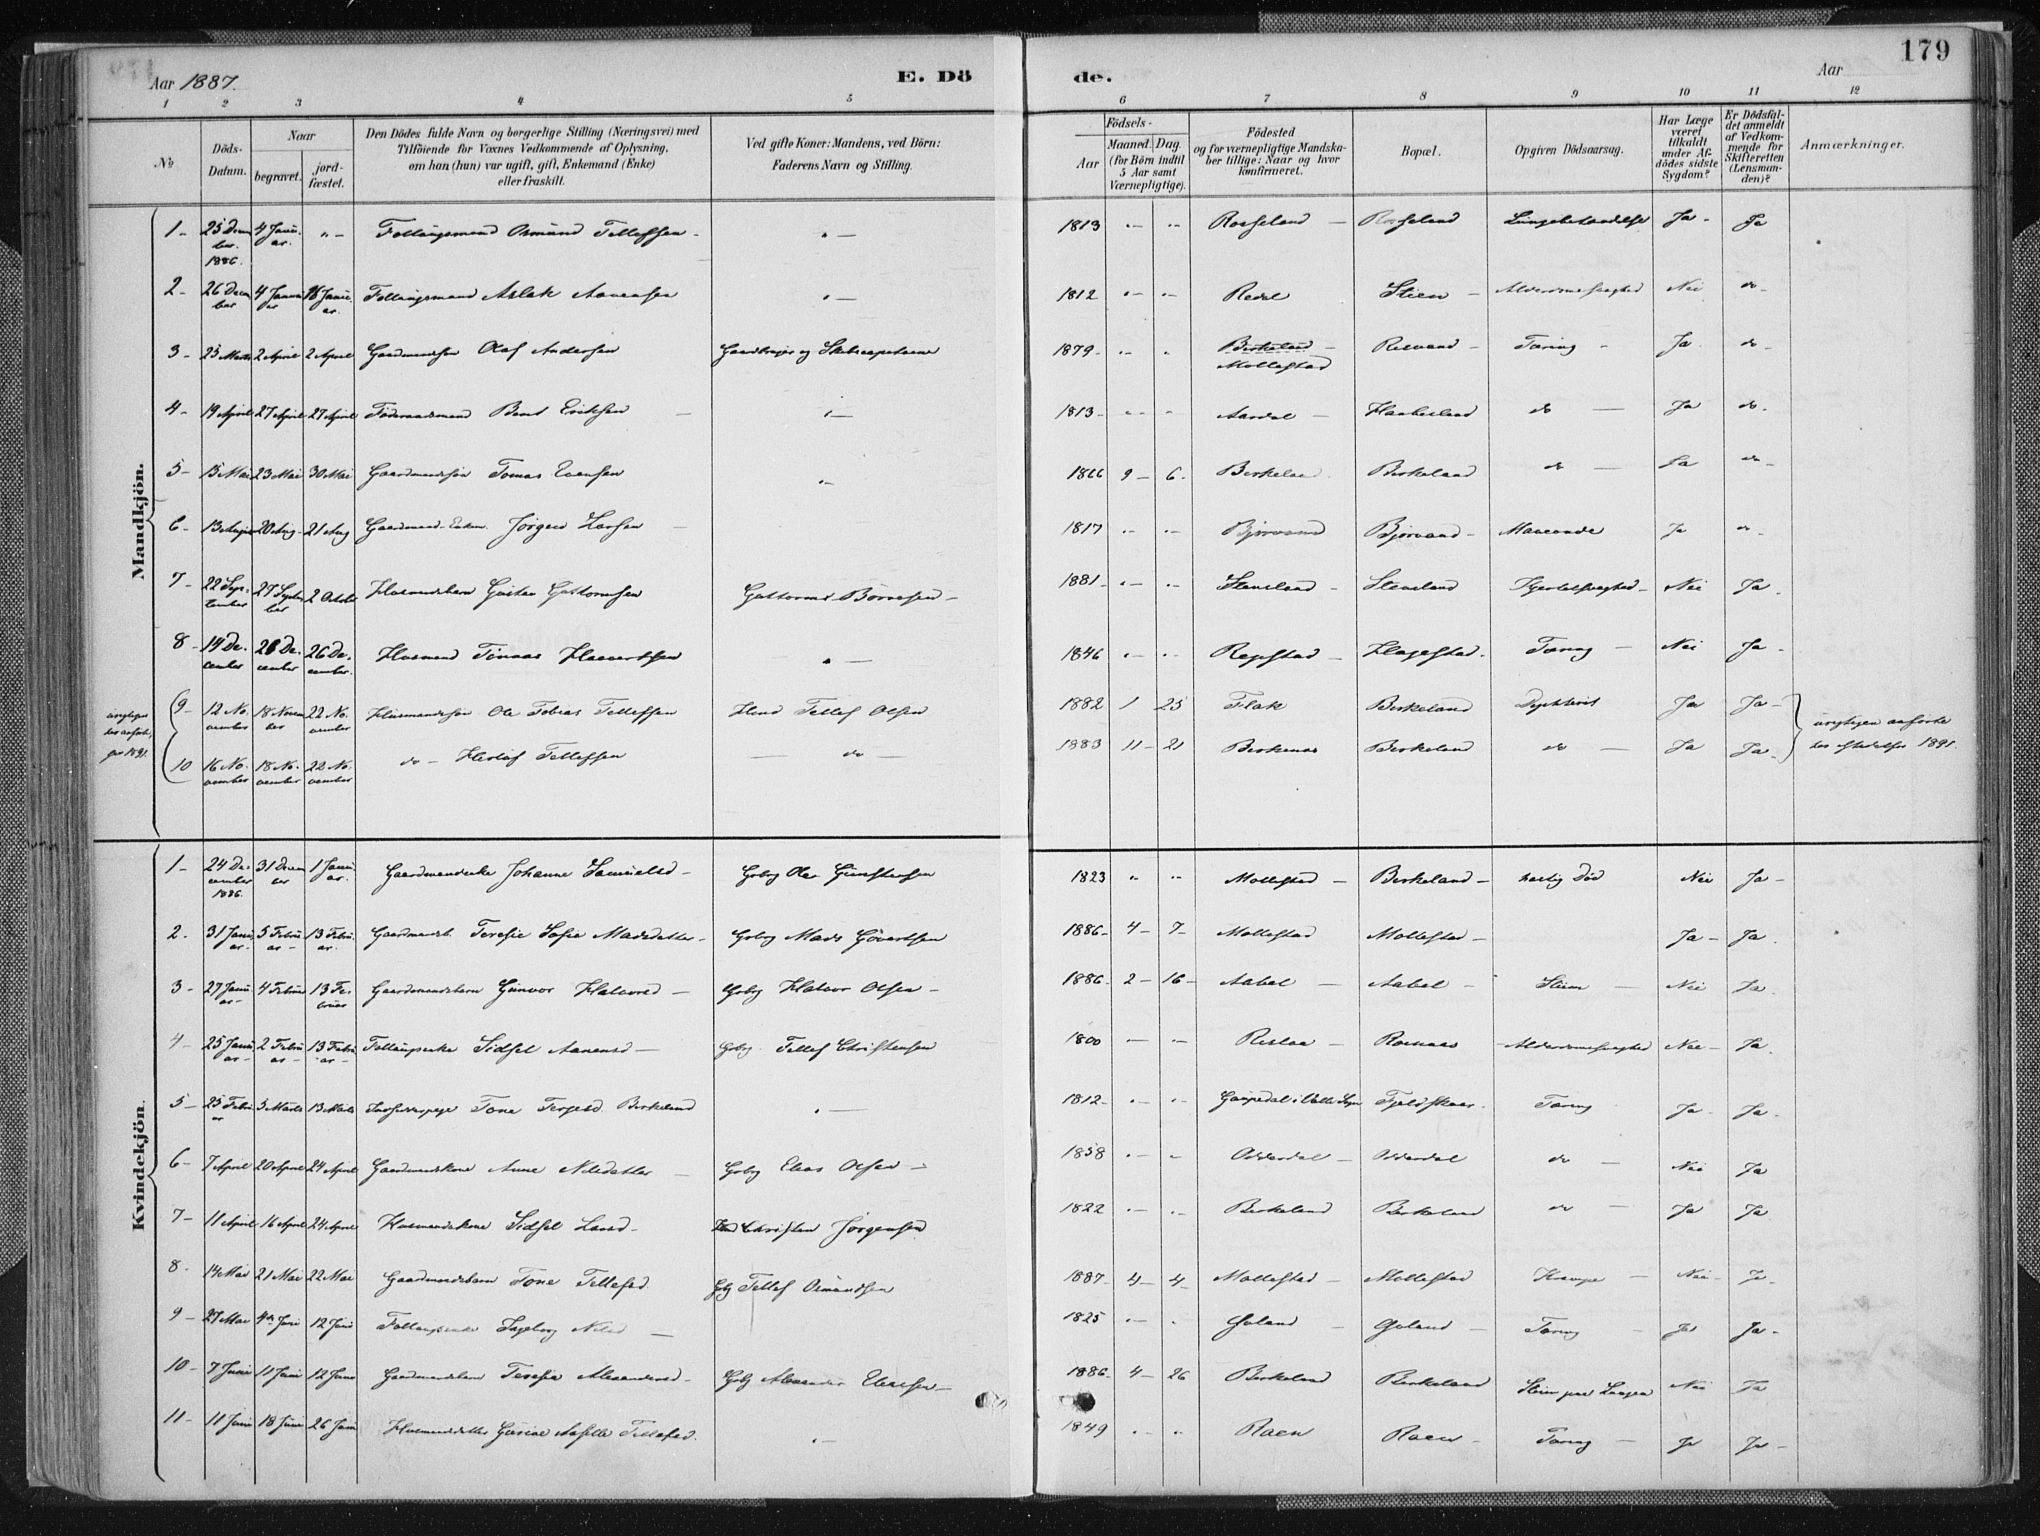 179
Aar 1887.
E. Dö
de.
Aar
1 2 3 4 5 6 7 8 9 10 11 12
No
Döds-Datum.
Naar
begravet.
jord-fæstet.
Den Dödes fulde Navn og borgerlige Stilling (Næringsvei) med
Tilföiende for Voxnes Vedkommende af Oplysning,
om han (hun) var ugift, gift, Enkemand (Enke)
eller fraskilt.
Ved gifte Koner: Mandens, ved Börn:
Faderens Navn og Stilling.
Födsels-
Aar
Maaned. Dag.
(for Börn indtil
5 Aar samt
Værnepligtige).
Födested
og for værnepligtige Mandska-
ber tillige: Naar og hvor
konfirmeret.
Bopæl.
Opgiven Dödsaarsag.
Har Læge
været
tilkaldt
under Af-
dödes sidste
Sygdom?
Er Dödsfal-
det anmeldt
af Vedkom-
mende for
Skifteretten
(Lensman-
den)?
Anmærkninger.
Mandkjön.
1- 25 Decem ber 1886. 4 Janu ar. "- Follaugsmand Osmund Tellefsen - "- 1813 "- "- Rosseland - Rosseland Lungebetændelse Ja - Ja
2- 26 Decem ber 4 Januar 16 Janu ar. Follaugsmand Aslak Aanensen "- 1812 "- "- Redal Stien - Alderdomssvaghed Nei do-
3- 25 Marts 2 April 2 April Gaardmandssön Olaf Andersen Gaardbruger og 1879- "- " Birkeland - Mollestad Tæring - Ja do-
4- 19 April 27 April 27 April Föderaadsmand Bent Eriksen - "- 1813- "- "- Aardal - Haabesland do - Ja do-
5- 15 Mai 23 Mai 30 Mai Gaardmandssön Tomas Evensen "- 1866 9- 6- Birkeland Birkeland do - Ja do-
6- 13 August 20 Aug- 21 Aug Gaardmand Enkem. Jörgen Larsen - 1817 "- "- Bjorvand Bjorvand - Maveonde Ja do-
7- 22 Sep-tember 27 Septem ber 2 October Husmandsbarn Gustav Guttormsen Guttorm Börresen - 1881- "- "- Stensland - Stensland Hjertesvaghed - Nei Ja-
8- 14 De-cember 26 De-cember 26 De-cember. Husmand Tönnes Haavortsen "- 1846 "- "- Repstad - Flagestad. Tæring - Nei Ja-
9- 12 No-vember 18 Novem ber 22 No-vember Husmandssön Ole Tobias Tellefsen Hmd Tellef Olsen 1882 1 25 Flak Birkeland Dyfterit Ja Ja-
10 16 No-vember 18 No-vember 22 No-vember do- Herlof Tellefsen - do - 1883 11- 21 Birkenes Birkeland do - Ja Ja-
1891.
Kvindekjön.
1- 24 De-cember 1886. 31 Decem ber 1 Janu ar. Gaardmandsenke Johanne Samuelsd - Grbg Ole Gunstensen 1823 " "- Mollestad - Birkeland - hastig Död Nei Ja-
2. 31 Janu ar- 5 Febru ar- 13 Febru ar. Gaardmandsb. Teresie Sofie Madsdatter - Grbg Mads Govertsen 1886- 4- 7- Mollestad Mollestad - Ja- Ja.
3- 27 Janu ar- 4 Februar 13 Fe-bruar Gaardmandsbarn Gunvor Halvorsd - Grbg Halvor Olsen - 1886- 2- 16- Aabel - Aabel - Slim - Nei Ja.
4- 25 Janu ar- 2 Febru ar- 13 Febru ar- Follaugsenke Sidsel Aanensd - Grbg. Tellef Christensen 1800 - - Rislaa - Rosnaes - Alderdomssvaghed Nei- Ja.
5- 25 Febru ar 3 Marts 13 Marts Tone Tergesd Birkeland "- 1812- "- "- Gaupedal i Valle Sogn Fjeldskaar. Tæring Ja- Ja.
6- 7 April 20 April 24 April Gaardmandskone Anne Nilsdatter - Grbg Elias Olsen - 1858 "- "- Odderdal - Odderdal do - Nei Ja
7- 11 April 16 April 24 April Husmandskone Sidsel Larsd- Hmd Christen Jörgensen 1822 "- "- Birkeland Birkeland do - Ja Ja
8- 14 Mai 21 Mai 22 Mai Gaardmandsbarn Tone Tellefsd. Gbg Tellef Osmundsen 1887- 4- 4- Mollestad - Mollestad Krampe - Nei- Ja-
9- 27 Mai 4de Juni 12 Juni Follaugsenke Ingeborg Nilsd - 1825 "- "- Goland - Goland - Tæring - Ja Ja-
10- 7 Juni 11 Juni 12 Juni Gaardmandsbarn Teresie Alexandersd- Grbg Alexander Eliassen - 1886- 4- 26 Birkeland Birkeland Slim paa Lungen Nei Ja
11- 11 Juni 18 Juni 26 Juni Husmandsdatter Gusine Asille Tellefsd. "- 1849 "- " Raen Raen - Tæring - Ja Ja-